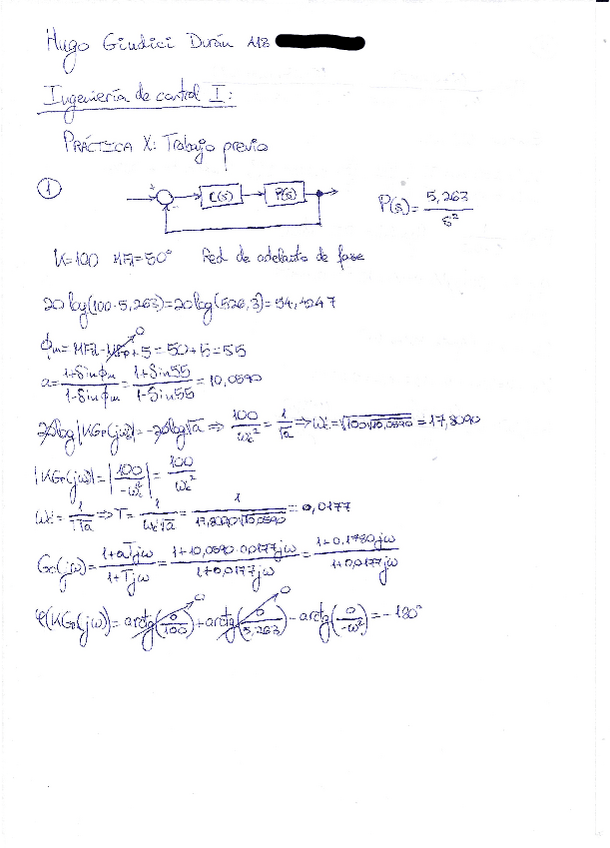 Hugo Giudici Durán A12
Ingeniería de control I:
PRÁCTICA X: Trabajo previo
1
C(s) P(s) P(s)= 5,263/s²
K=100 MFd=50° Red de adelanto de fase
20log(100·5,263)=20log(526,3)=54,4247
ϕm=MFd-MFo+5=50+5=55 0
a=(1+Sinϕm)/(1-Sinϕm)=(1+Sin55)/(1-Sin55)=10,0590
20log|KGp(jω)|=-20log√a ⇒ 100/ωc²=1/√a ⇒ ωc=√(100√10,0590)=17,8090
|KGp(jω)|=|100/-ωc²|=100/ωc²
ωc=1/(T√a) ⇒ T=1/(ωc√a)=1/(17,8090√10,0590)=0,0177
Gc(jω)=(1+aTjω)/(1+Tjω)=(1+10,0590·0,0177jω)/(1+0,0177jω)=(1+0,1780jω)/(1+0,0177jω)
φ(KGp(jω))=arctg(0/100)+arctg(0/5,263)-arctg(0/-ω²)=-180° 0 0